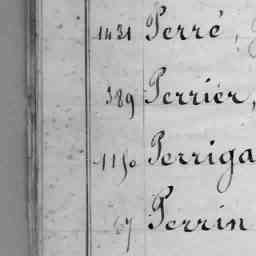 1431 Perré,
389 Perrier,
1150 Perriga
67 Perrin